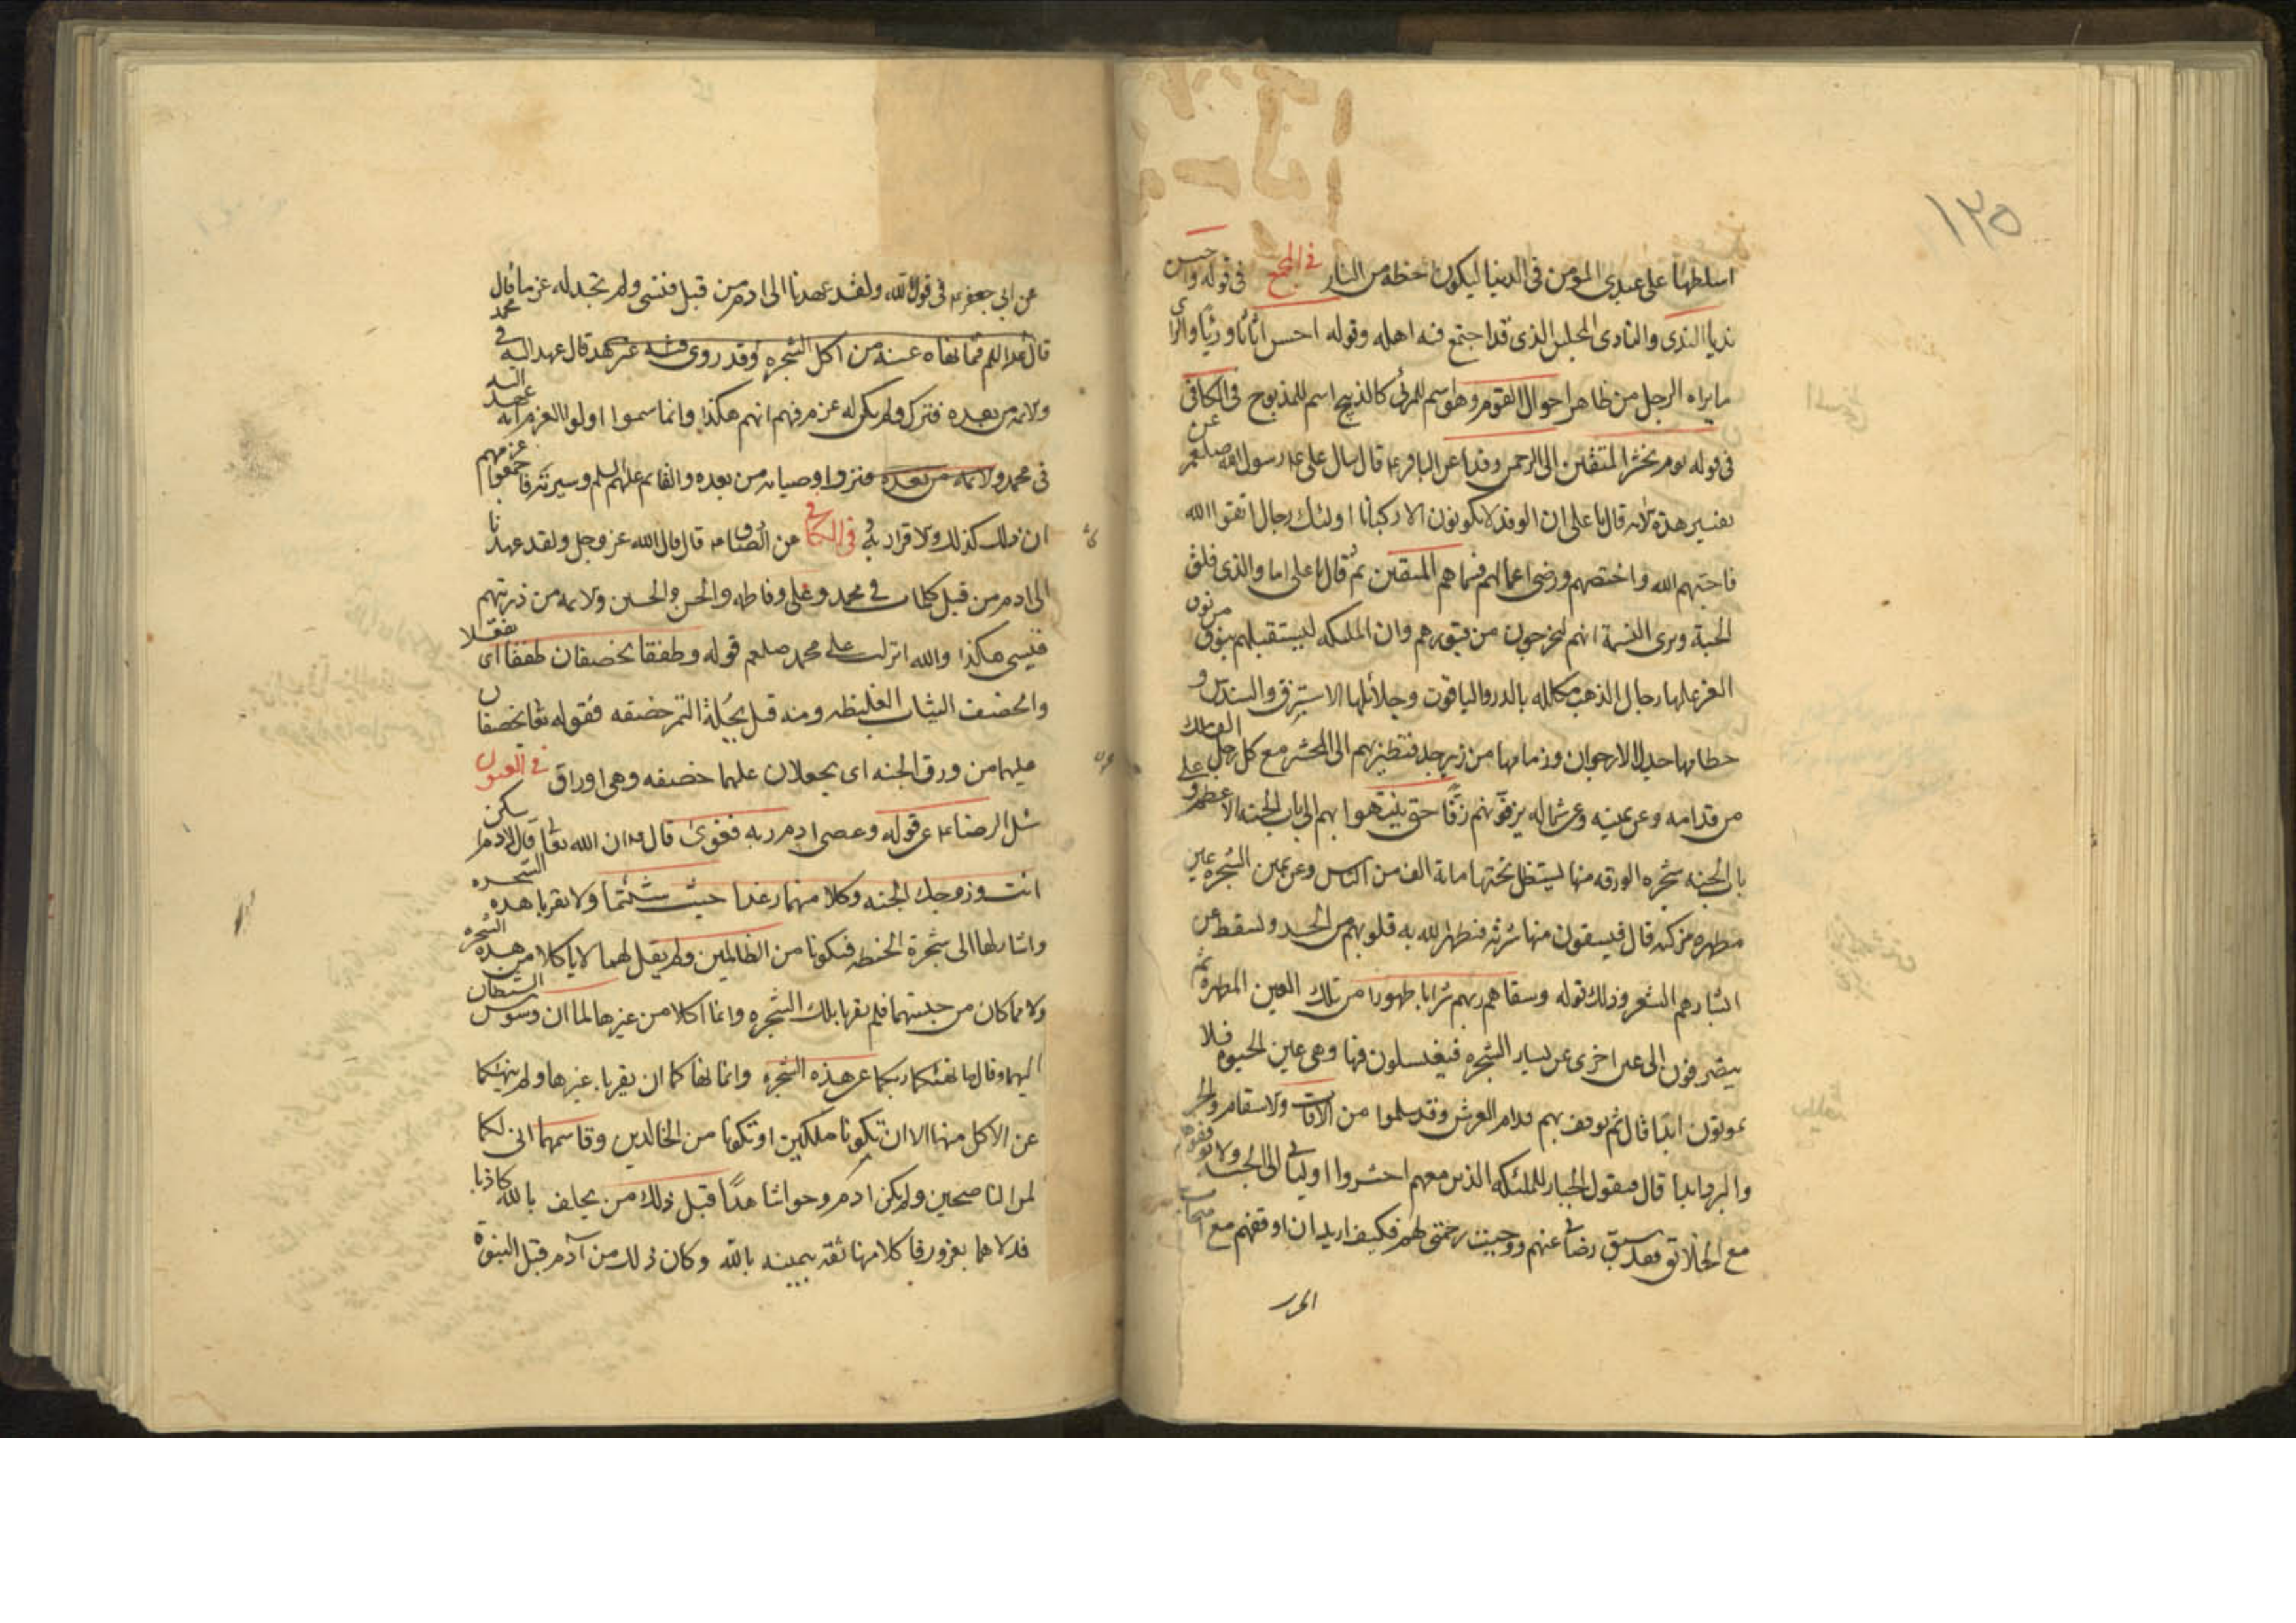 ١٢٥
اسلطها على عبدي المؤمن في الدنيا ليكون حظه من النار في المجمع في قوله واحسن
نديا الندى والنادى المجلس الذى قد اجتمع فيه اهله وقوله احسن اثاثا ورئيا والراى
ما يراه الرجل من ظاهر احوال القوم وهو اسم للمرئى كالذبح اسم للمذبوح في الكافي
في قوله يوم نحشر المتقين الى الرحمن وفدا عن الباقر ع قال سال على ع رسول الله صلعم عن
تفسير هذه الاية قال يا على ان الوفد لا يكونون الا ركبانا اولئك رجال اتقوا الله
فاحبهم الله واختصهم ورضى اعمالهم فسماهم المتقين ثم قال يا على اما والذى فلق
الحبة وبرى النسمة انهم ليخرجون من قبورهم وان الملئكه ليستقبلهم بنوق من نوق
العز عليها رحال الذهب مكلله بالدر والياقوت وجلائلها الاستبرق والسندس و
خطامها جدل الارجوان وزمامها من زبرجد فتطير بهم الى المحشر مع كل رجل الف ملك
من قدامه وعن يمينه وعن شماله يزفونهم زفا حتى ينتهوا بهم الى باب الجنه الاعظم وعلى
باب الجنه شجره الورقه منها ليستظل تحتها مائة الف من الناس وعن يمين الشجره عين
مطهره مزكيه قال فيسقون منها شربه فيطهر الله به قلوبهم من الحسد ويسقط عن
ابشارهم الشعر وذلك قوله وسقاهم ربهم شرابا طهورا من تلك العين المطهره ثم
يصرفون الى عين اخرى عن يسار الشجره فيغتسلون فيها وهى عين الحيوة فلا
يموتون ابدا قال ثم يوقف بهم قدام العرش وقد سلموا من الافات والاسقام والحر
والبرد ابدا قال فيقول الجبار للملئكه الذين معهم احشروا اوليائى الى الجنه ولا توقفوهم
مع الخلائق فقد سبق رضائى عنهم ووجبت رحمتى لهم فكيف اريد ان اوقفهم مع اصحاب
عن ابى جعفر ع في قول الله ولقد عهدنا الى ادم من قبل فنسى ولم نجد له عزما قال
ولائمه من بعده فترك ولم يكن له عزم فيهم انهم هكذا وانما سموا اولوا العزم انه عهد اليه
في محمد والائمه من بعده والقائم عليهم السلم وسيرته فاجمعوا عزمهم
ان ذلك كذلك والاقرار به في الكافي عن الصادق ع قال قال الله عز وجل ولقد عهدنا
الى ادم من قبل كلمات في محمد وعلى وفاطمه والحسن والحسين والائمه من ذريتهم
فنسى هكذا والله انزلت على محمد صلعم قوله وطفقا يخصفان طفقا اى
والخصف الثياب الغليظه ومنه قيل لجلة التمر خصفه فقوله تعا يخصفان
عليهما من ورق الجنه اى يجعلان عليهما خصفه وهى اوراق في العيون
سئل الرضا ع عن قوله وعصى ادم ربه فغوى قال ع ان الله تعا قال لادم اسكن
انت وزوجك الجنه وكلا منها رغدا حيث شئتما ولا تقربا هذه الشجره
واشار لهما الى شجرة الحنطه فتكونا من الظالمين ولم يقل لهما لا ياكلا من هذه الشجره
ولا مما كان من جنسهما فلم يقربا تلك الشجره وانما اكلا من غيرها لما ان وسوس الشيطان
اليهما وقال ما نهيكما ربكما عن هذه الشجره وانما نهاكما ان يقربا غيرها ولم ينهكما
عن الاكل منها الا ان تكونا ملكين او تكونا من الخالدين وقاسمهما انى لكما
لمن الناصحين ولم يكن ادم وحوا شاهدا قبل ذلك من يحلف بالله كاذبا
فدلاهما بغرور فاكلا منها ثقه بيمينه بالله وكان ذلك من آدم قبل النبوة